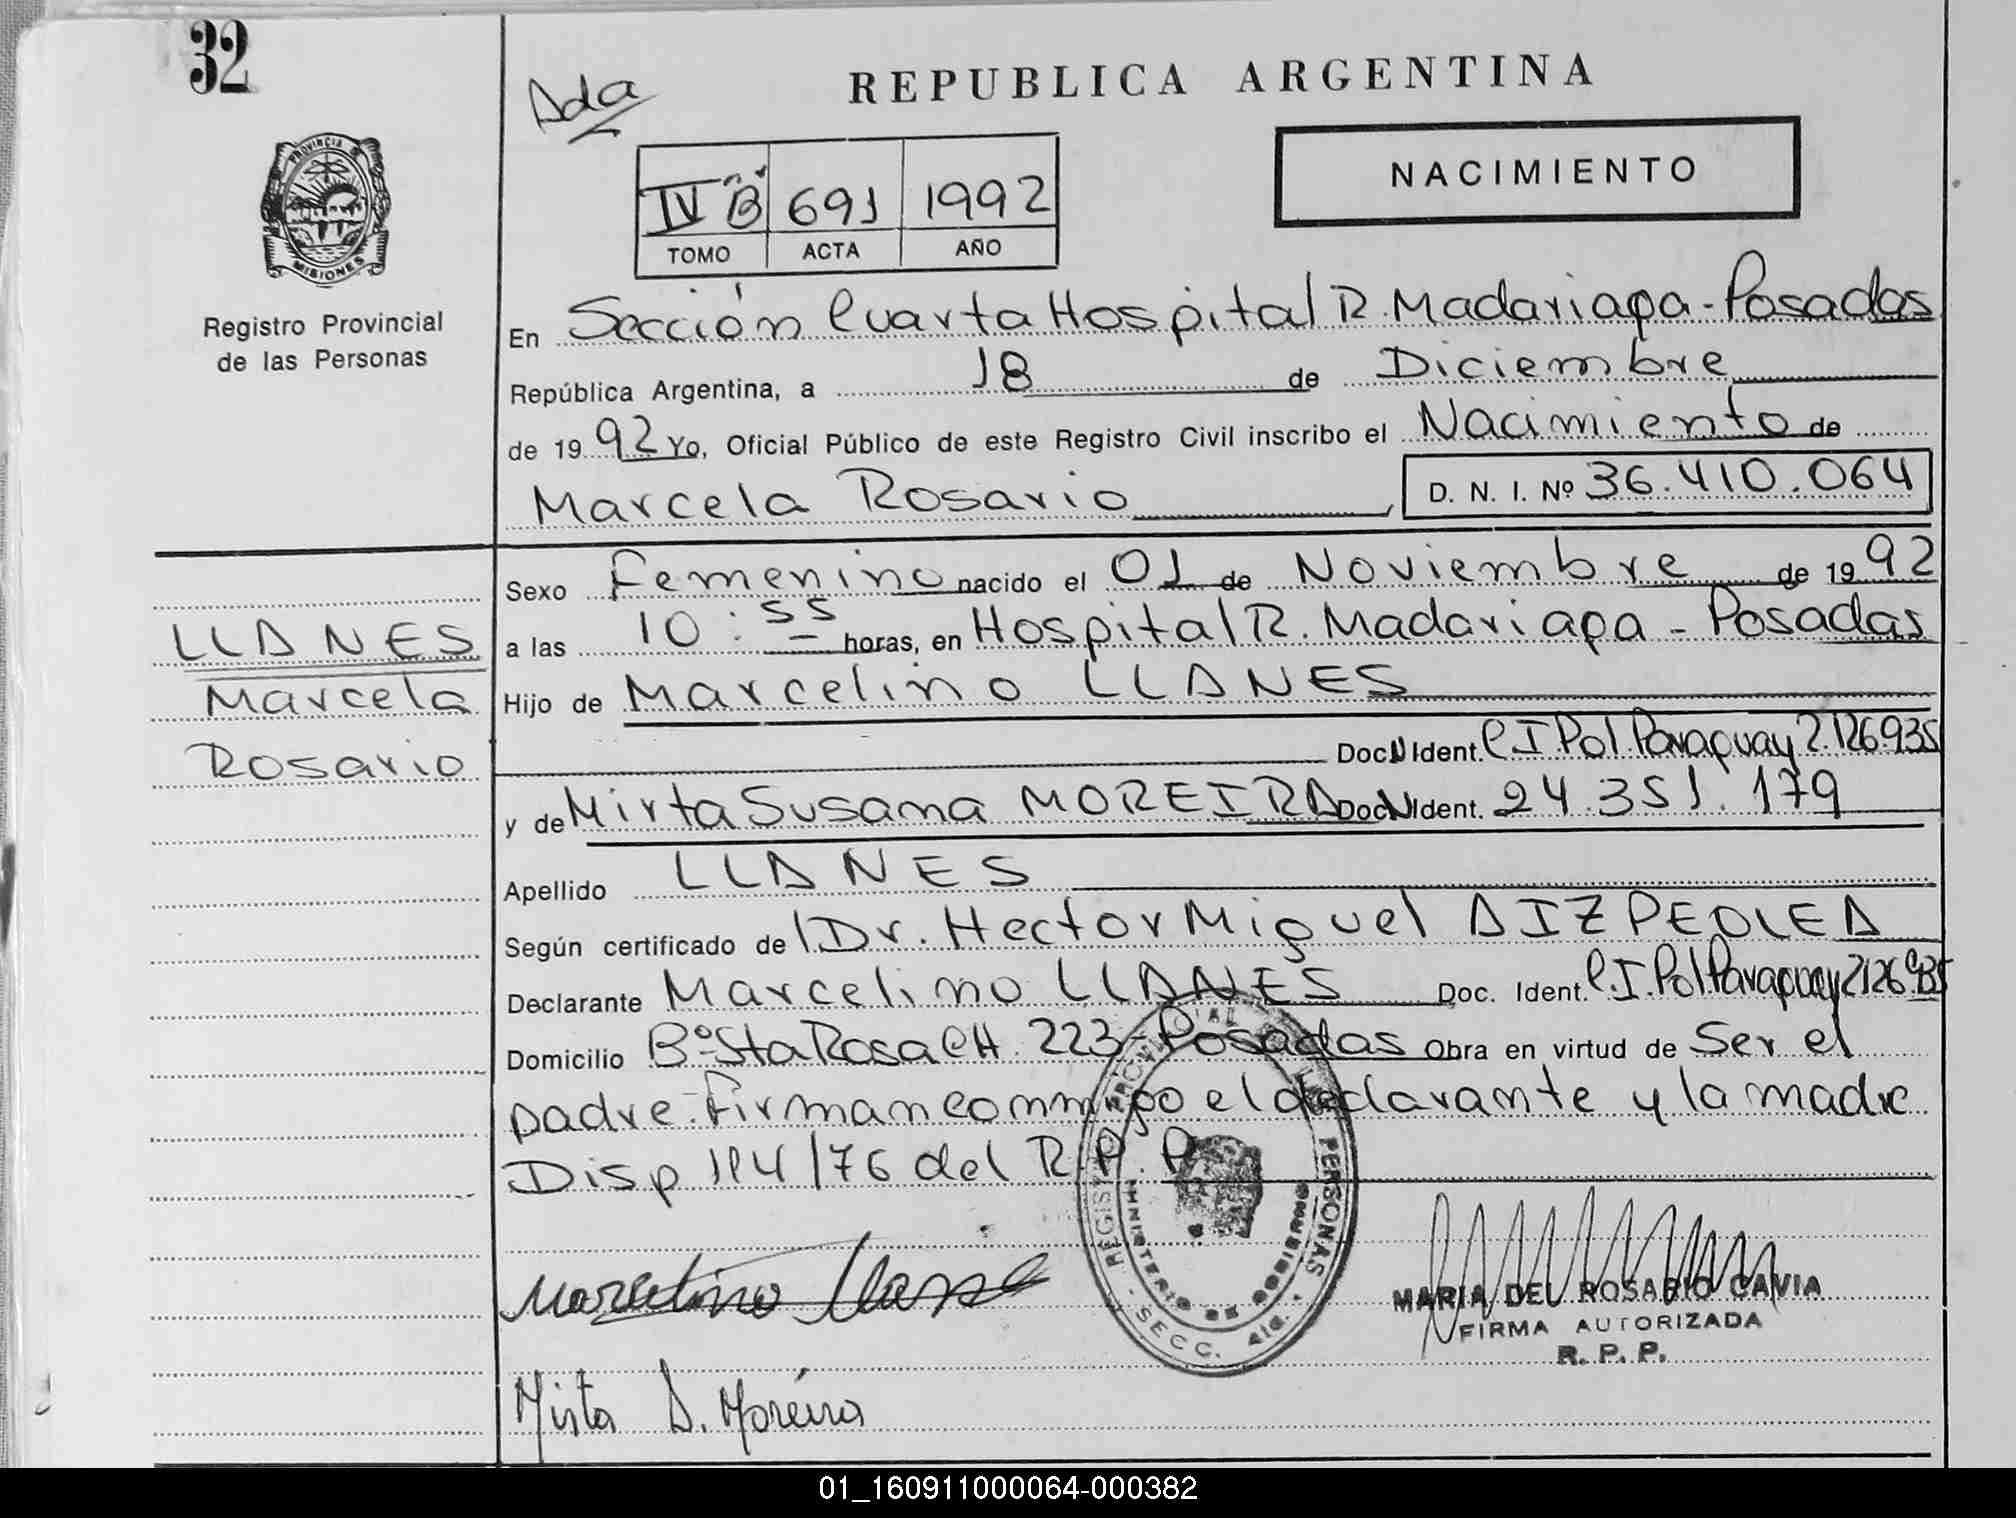 32
Ada
REPUBLICA ARGENTINA
NACIMIENTO
IV "B" 691 1992
TOMO ACTA AÑO
PROVINCIA DE MISIONES
Registro Provincial
de las Personas
En Sección Cuarta Hospital R. Madariaga - Posadas
República Argentina, a 18 de Diciembre
de 1992 Yo, Oficial Público de este Registro Civil inscribo el Nacimiento de
Marcela Rosario, D. N. I. Nº 36.410.064
Sexo Femenino nacido el 01 de Noviembre de 1992
a las 10:55 horas, en Hospital R. Madariaga - Posadas
Hijo de Marcelino LLANES
Doc. N Ident. C.I. Pol. Paraguay 2.126.935
y de Mirta Susana MOREIRA Doc. N Ident. 24.351.179
Apellido LLANES
Según certificado de l Dr. Hector Miguel AIZPEOLEA
Declarante Marcelino LLANES Doc. Ident. C.I. Pol Paraguay 2126935
Domicilio Bº Sta Rosa CH. 223 - Posadas Obra en virtud de Ser el
padre. Firman conmigo el declarante y la madre
Disp 114/76 del R.P.P.
LLANES
Marcela
Rosario
REGISTRO PROVINCIAL DE LAS PERSONAS - SECC. 4ta. -
MINISTERIO DE GOBIERNO
Marcelino Llanes
MARIA DEL ROSARIO CAVIA
FIRMA AUTORIZADA
R. P. P.
Mirta S. Moreira
01_160911000064-000382